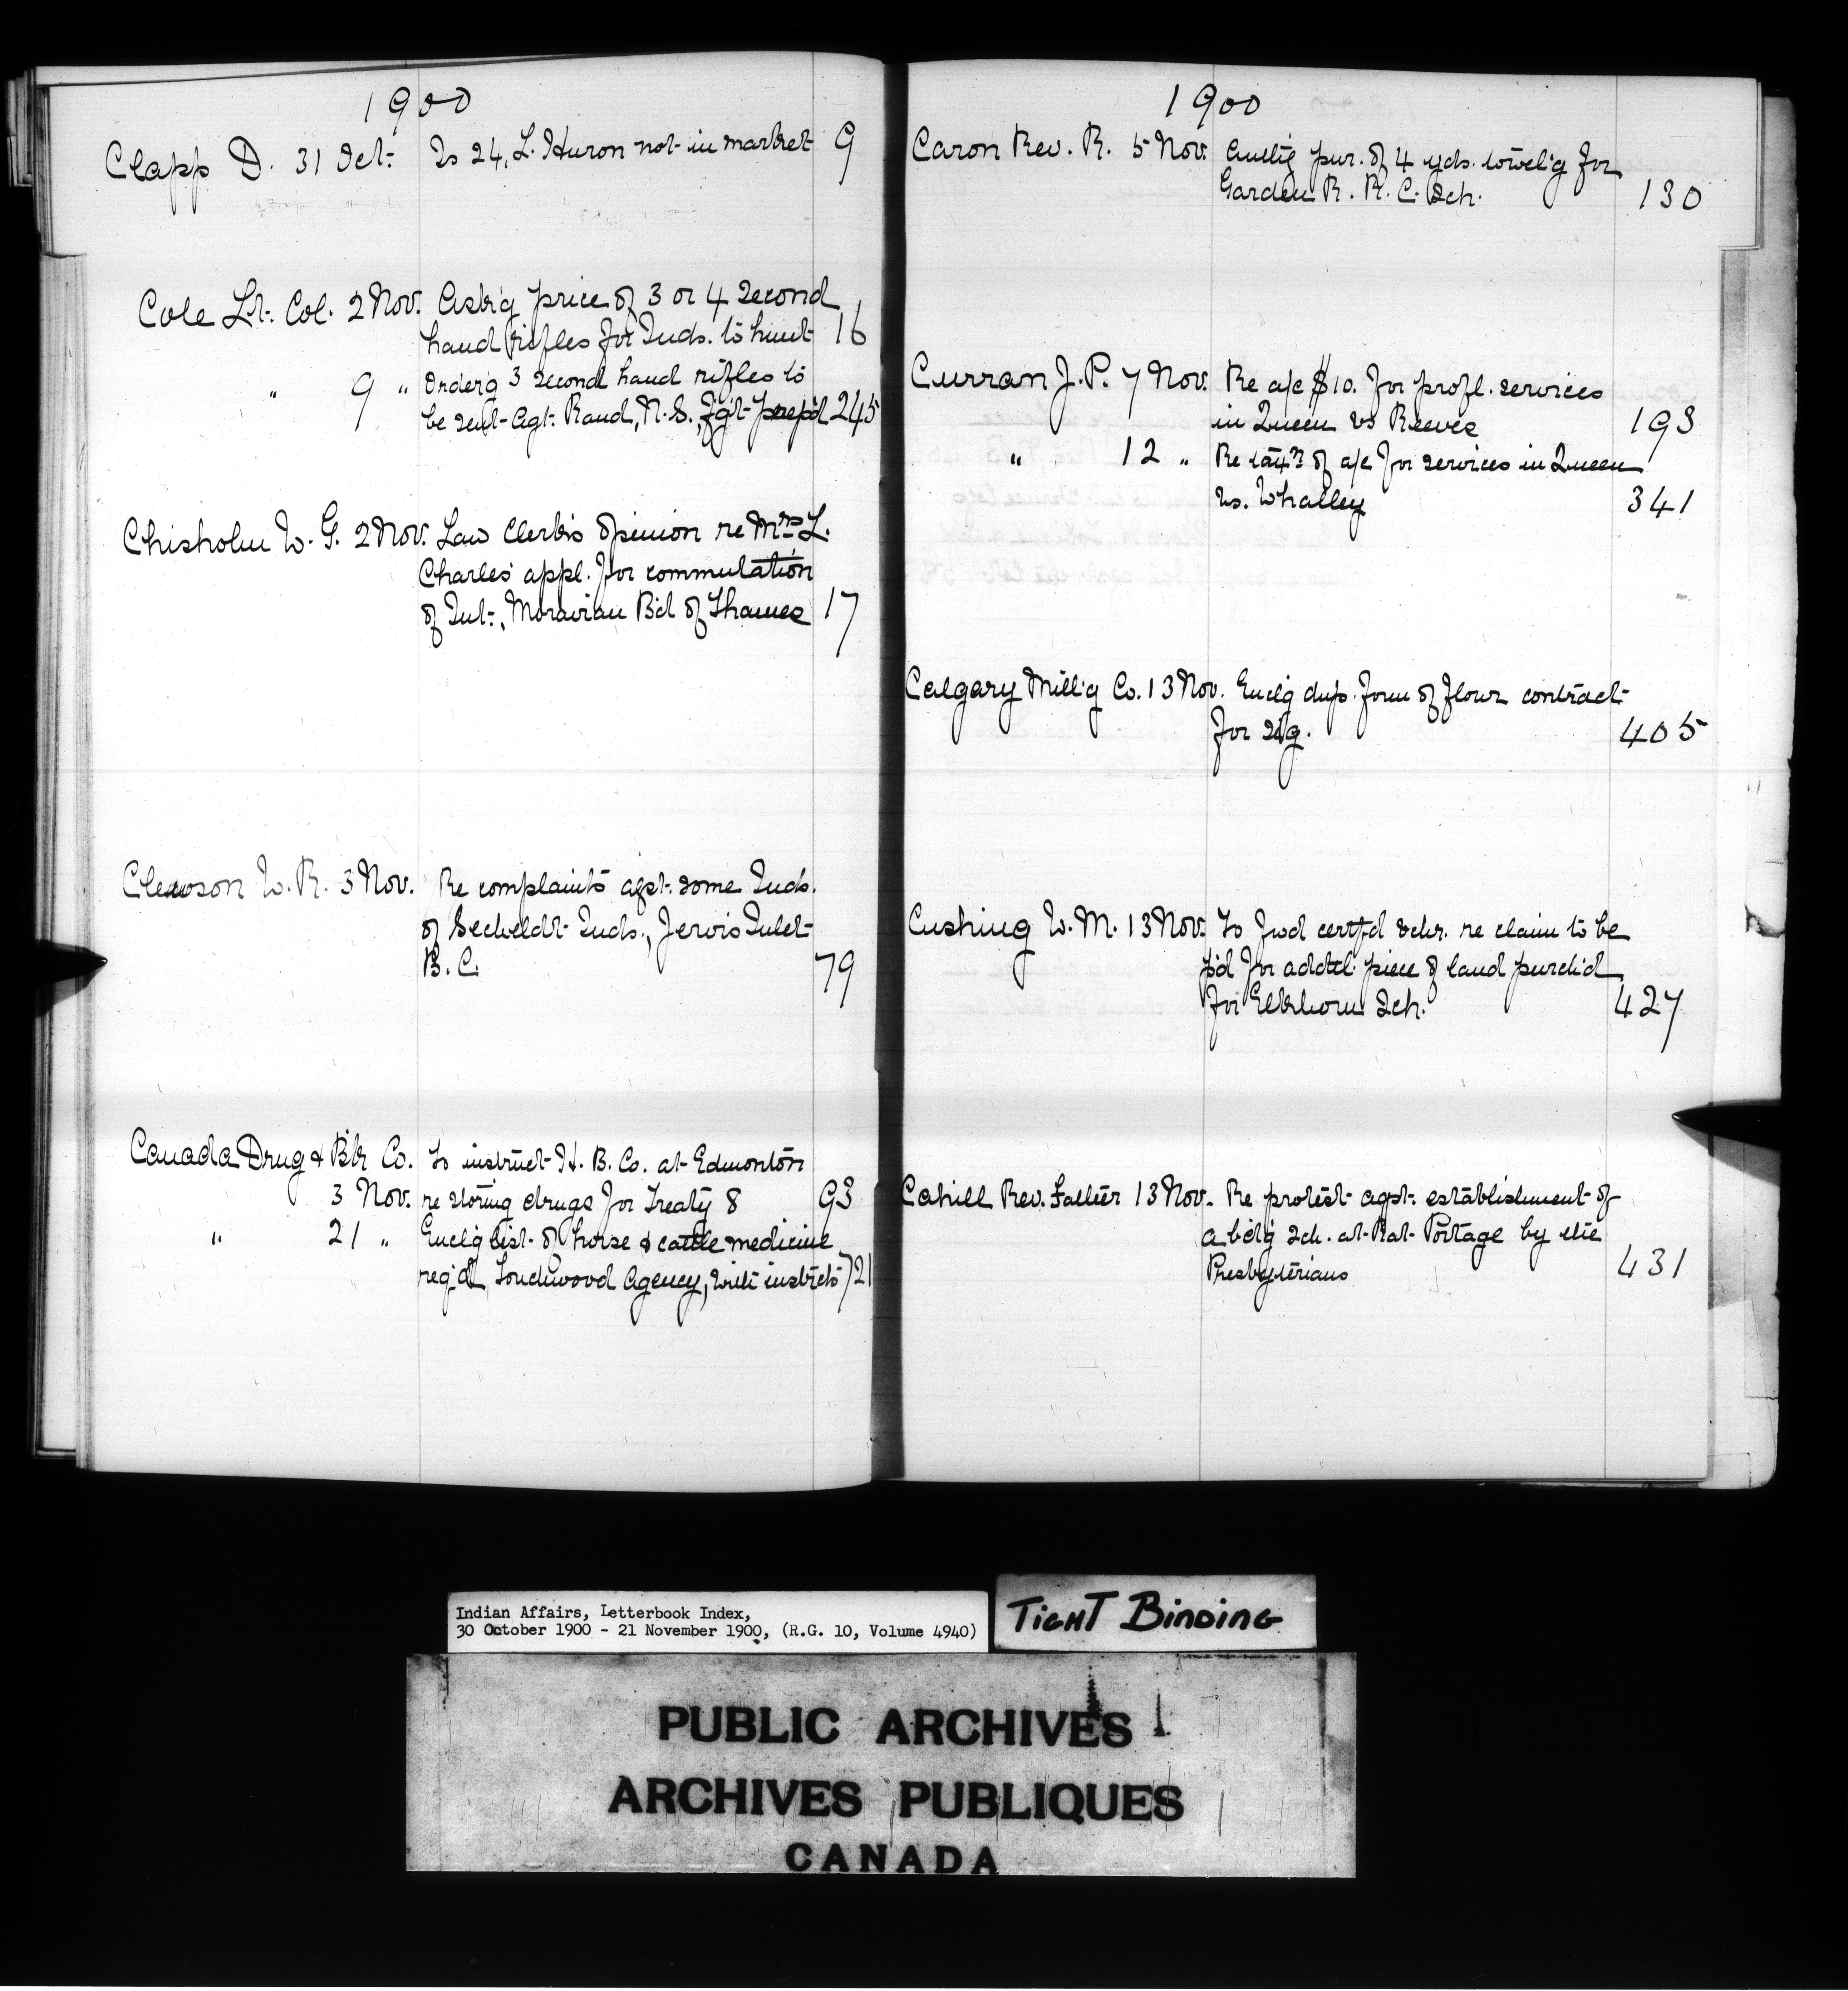 1900
Clapp D. 31 Oct. Is 24, L. Huron not in market 9
Cole Lt. Col. 2 Nov. Ask'g price of 3 or 4 second
hand rifles for Inds. to hunt 16
" 9 " Order'g 3 second hand rifles to
be sent Agt. Rand, N.S., fg't prep'd 245
Chisholm W. G. 2 Nov. Law Clerk's opinion re Mrs L.
Charles' appl. for commutation
of Int., Moravian B'd of Thames 17
W. R. 3 Nov. Re complaints agst. some Inds.
of Secheldt Inds., Jervis Inlet
B. C. 79
Canada Drug & B'k Co. To instruct H. B. Co. at Edmonton
3 Nov. re storing drugs for Treaty 8 93
" 21 " Encl'g list of horse & cattle medicine
req'd Touchwood Agency, with instrcts 721
1900
Caron Rev. R. 5 Nov. Auth'g pur. of 4 yds. towel'g for
Garden R. R. C. Sch. 130
Curran J. P. 7 Nov. Re a/c $10. for profl. services
in Queen vs Reeves 193
" 12 " Re tax'n of a/c for services in Queen
vs. Whalley 341
Calgary Mill'g Co. 13 Nov. Encl'g dup. form of flour contract
for sig. 405
Cushing W. M. 13 Nov. To fwd certf'd vchr. re claim to be
p'd for addtl. piece of land purch'd
for Elkhorn Sch. 427
Cahill Rev. Father 13 Nov. Re protest agst. establishment of
a bd'g Sch. at Rat Portage by the
Presbyterians 431
Indian Affairs, Letterbook Index,
30 October 1900 - 21 November 1900, (R.G. 10, Volume 4940)
TIGHT BINDING
PUBLIC ARCHIVES
ARCHIVES PUBLIQUES
CANADA